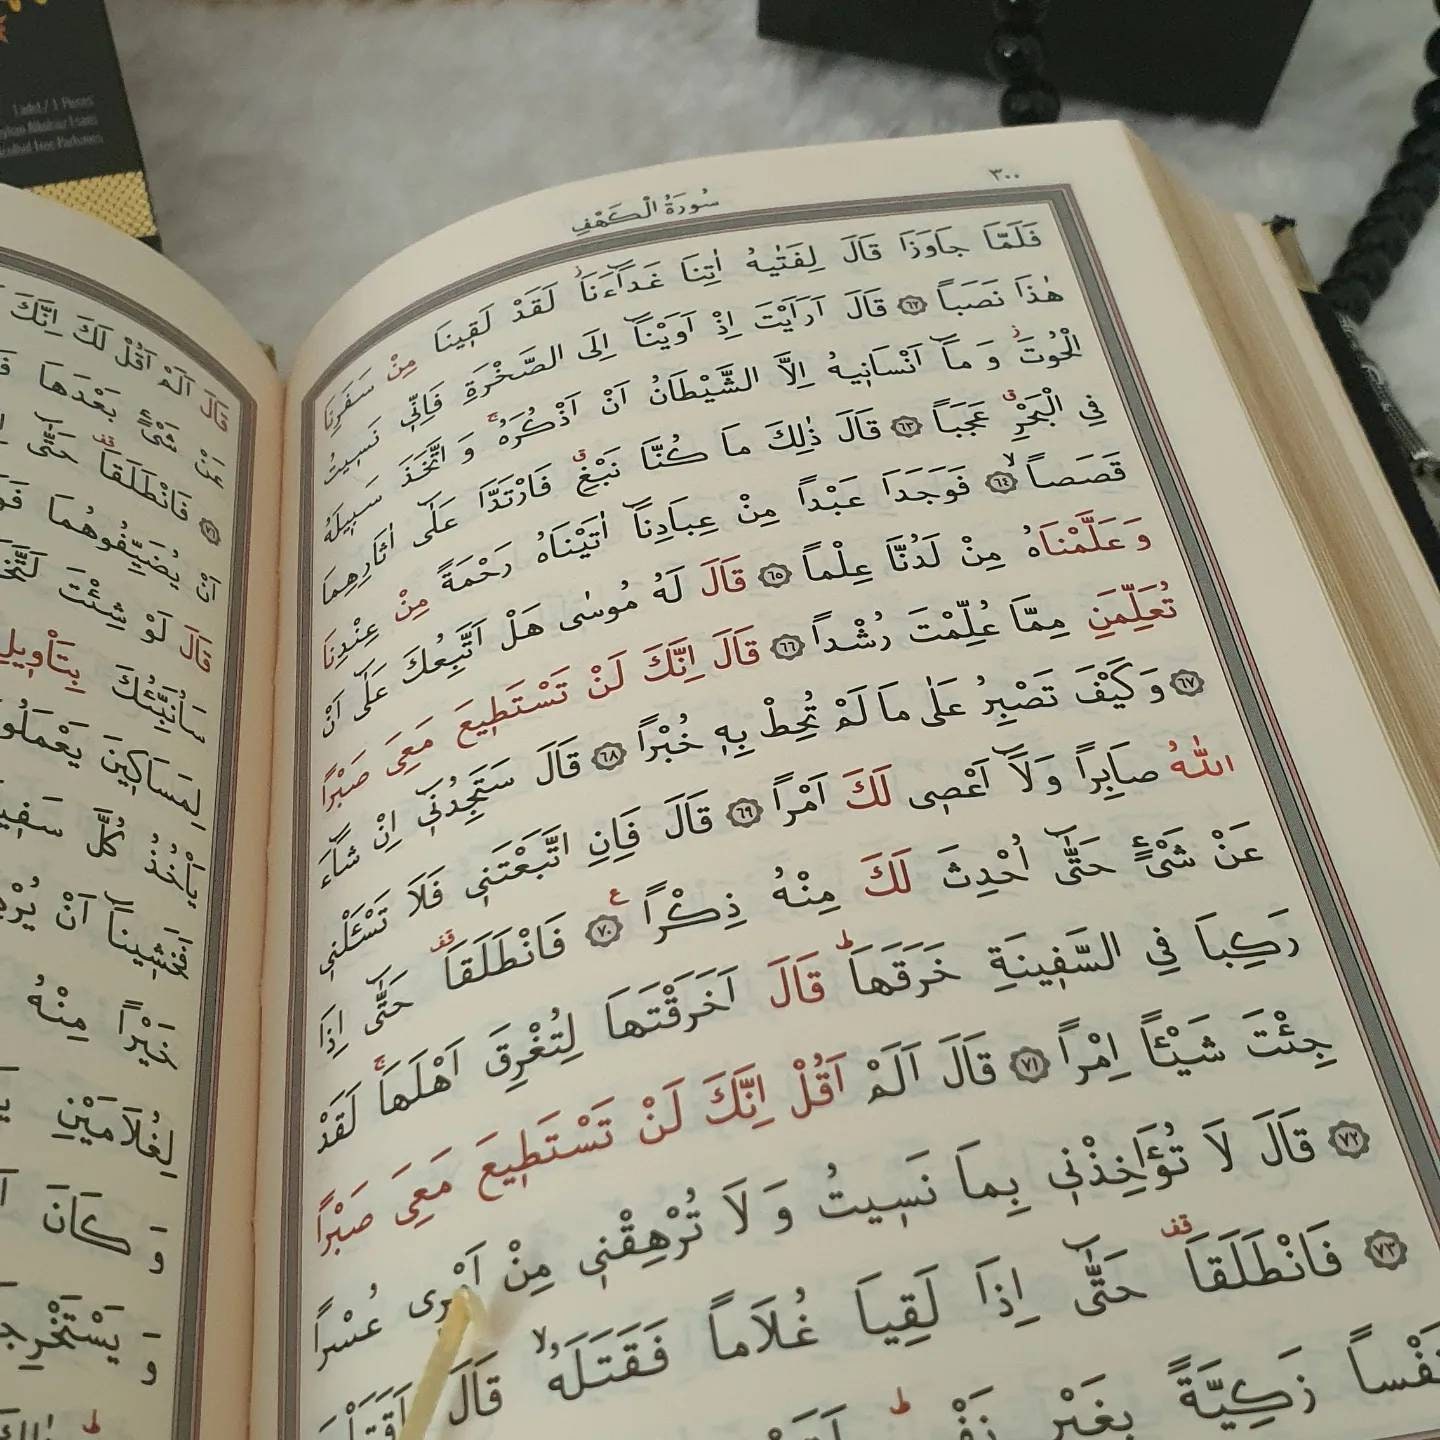 ٣٠٠
سُورَةُ الْكَهْفِ
فَلَمَّا جَاوَزَا قَالَ لِفَتٰيهُ اٰتِنَا غَدَٓاءَنَاۘ لَقَدْ لَقٖينَا مِنْ سَفَرِنَا
هٰذَا نَصَباً ﴿٦٢﴾ قَالَ اَرَاَيْتَ اِذْ اَوَيْنَٓا اِلَى الصَّخْرَةِ فَاِنّٖى نَسٖيتُ
الْحُوتَۘ وَ مَٓا اَنْسَانٖيهُ اِلَّا الشَّيْطَانُ اَنْ اَذْكُرَهُۚ وَ اتَّخَذَ سَبٖيلَهُ
فِى الْبَحْرِࣗ عَجَباً ﴿٦٣﴾ قَالَ ذٰلِكَ مَا كُنَّا نَبْغِࣗ فَارْتَدَّا عَلٰٓى اٰثَارِهِمَا
قَصَصاًۙ ﴿٦٤﴾ فَوَجَدَا عَبْداً مِنْ عِبَادِنَٓا اٰتَيْنَاهُ رَحْمَةً مِنْ عِنْدِنَا
وَعَلَّمْنَاهُ مِنْ لَدُنَّا عِلْماً ﴿٦٥﴾ قَالَ لَهُ مُوسٰى هَلْ اَتَّبِعُكَ عَلٰٓى اَنْ
تُعَلِّمَنِ مِمَّا عُلِّمْتَ رُشْداً ﴿٦٦﴾ قَالَ اِنَّكَ لَنْ تَسْتَطٖيعَ مَعِىَ صَبْراً
﴿٦٧﴾ وَكَيْفَ تَصْبِرُ عَلٰى مَا لَمْ تُحِطْ بِهٖ خُبْراً ﴿٦٨﴾ قَالَ سَتَجِدُنٖٓى اِنْ شَٓاءَ
اللّٰهُ صَابِراً وَلَٓا اَعْصٖى لَكَ اَمْراً ﴿٦٩﴾ قَالَ فَاِنِ اتَّبَعْتَنٖى فَلَا تَسْـَٔلْنٖى
عَنْ شَىْءٍ حَتّٰٓى اُحْدِثَ لَكَ مِنْهُ ذِكْراً ﴿٧٠﴾ ع فَانْطَلَقَاࣞ حَتّٰٓى اِذَا
رَكِبَا فِى السَّفٖينَةِ خَرَقَهَاؕ قَالَ اَخَرَقْتَهَا لِتُغْرِقَ اَهْلَهَاۚ لَقَدْ
جِئْتَ شَيْـٔاً اِمْراً ﴿٧١﴾ قَالَ اَلَمْ اَقُلْ اِنَّكَ لَنْ تَسْتَطٖيعَ مَعِىَ صَبْراً
﴿٧٢﴾ قَالَ لَا تُؤَاخِذْنٖى بِمَا نَسٖيتُ وَ لَا تُرْهِقْنٖى مِنْ اَمْرٖى عُسْراً
﴿٧٣﴾ فَانْطَلَقَاࣞ حَتّٰٓى اِذَا لَقِيَا غُلَاماً فَقَتَلَهُۙ قَالَ اَقَتَلْتَ
نَفْساً زَكِيَّةً بِغَيْرِ
قَالَ اَلَمْ اَقُلْ لَكَ اِنَّكَ
عَنْ شَىْءٍ بَعْدَهَا
﴿٧٦﴾ فَانْطَلَقَاࣞ حَتّٰٓى
اَنْ يُضَيِّفُوهُمَا
قَالَ لَوْ شِئْتَ
سَاُنَبِّئُكَ بِتَاْوٖيلِ
لِمَسَاكٖينَ
يَاْخُذُ كُلَّ
فَخَشٖينَٓا اَنْ
خَيْراً مِنْهُ
لِغُلَامَيْنِ
وَ كَانَ
وَ